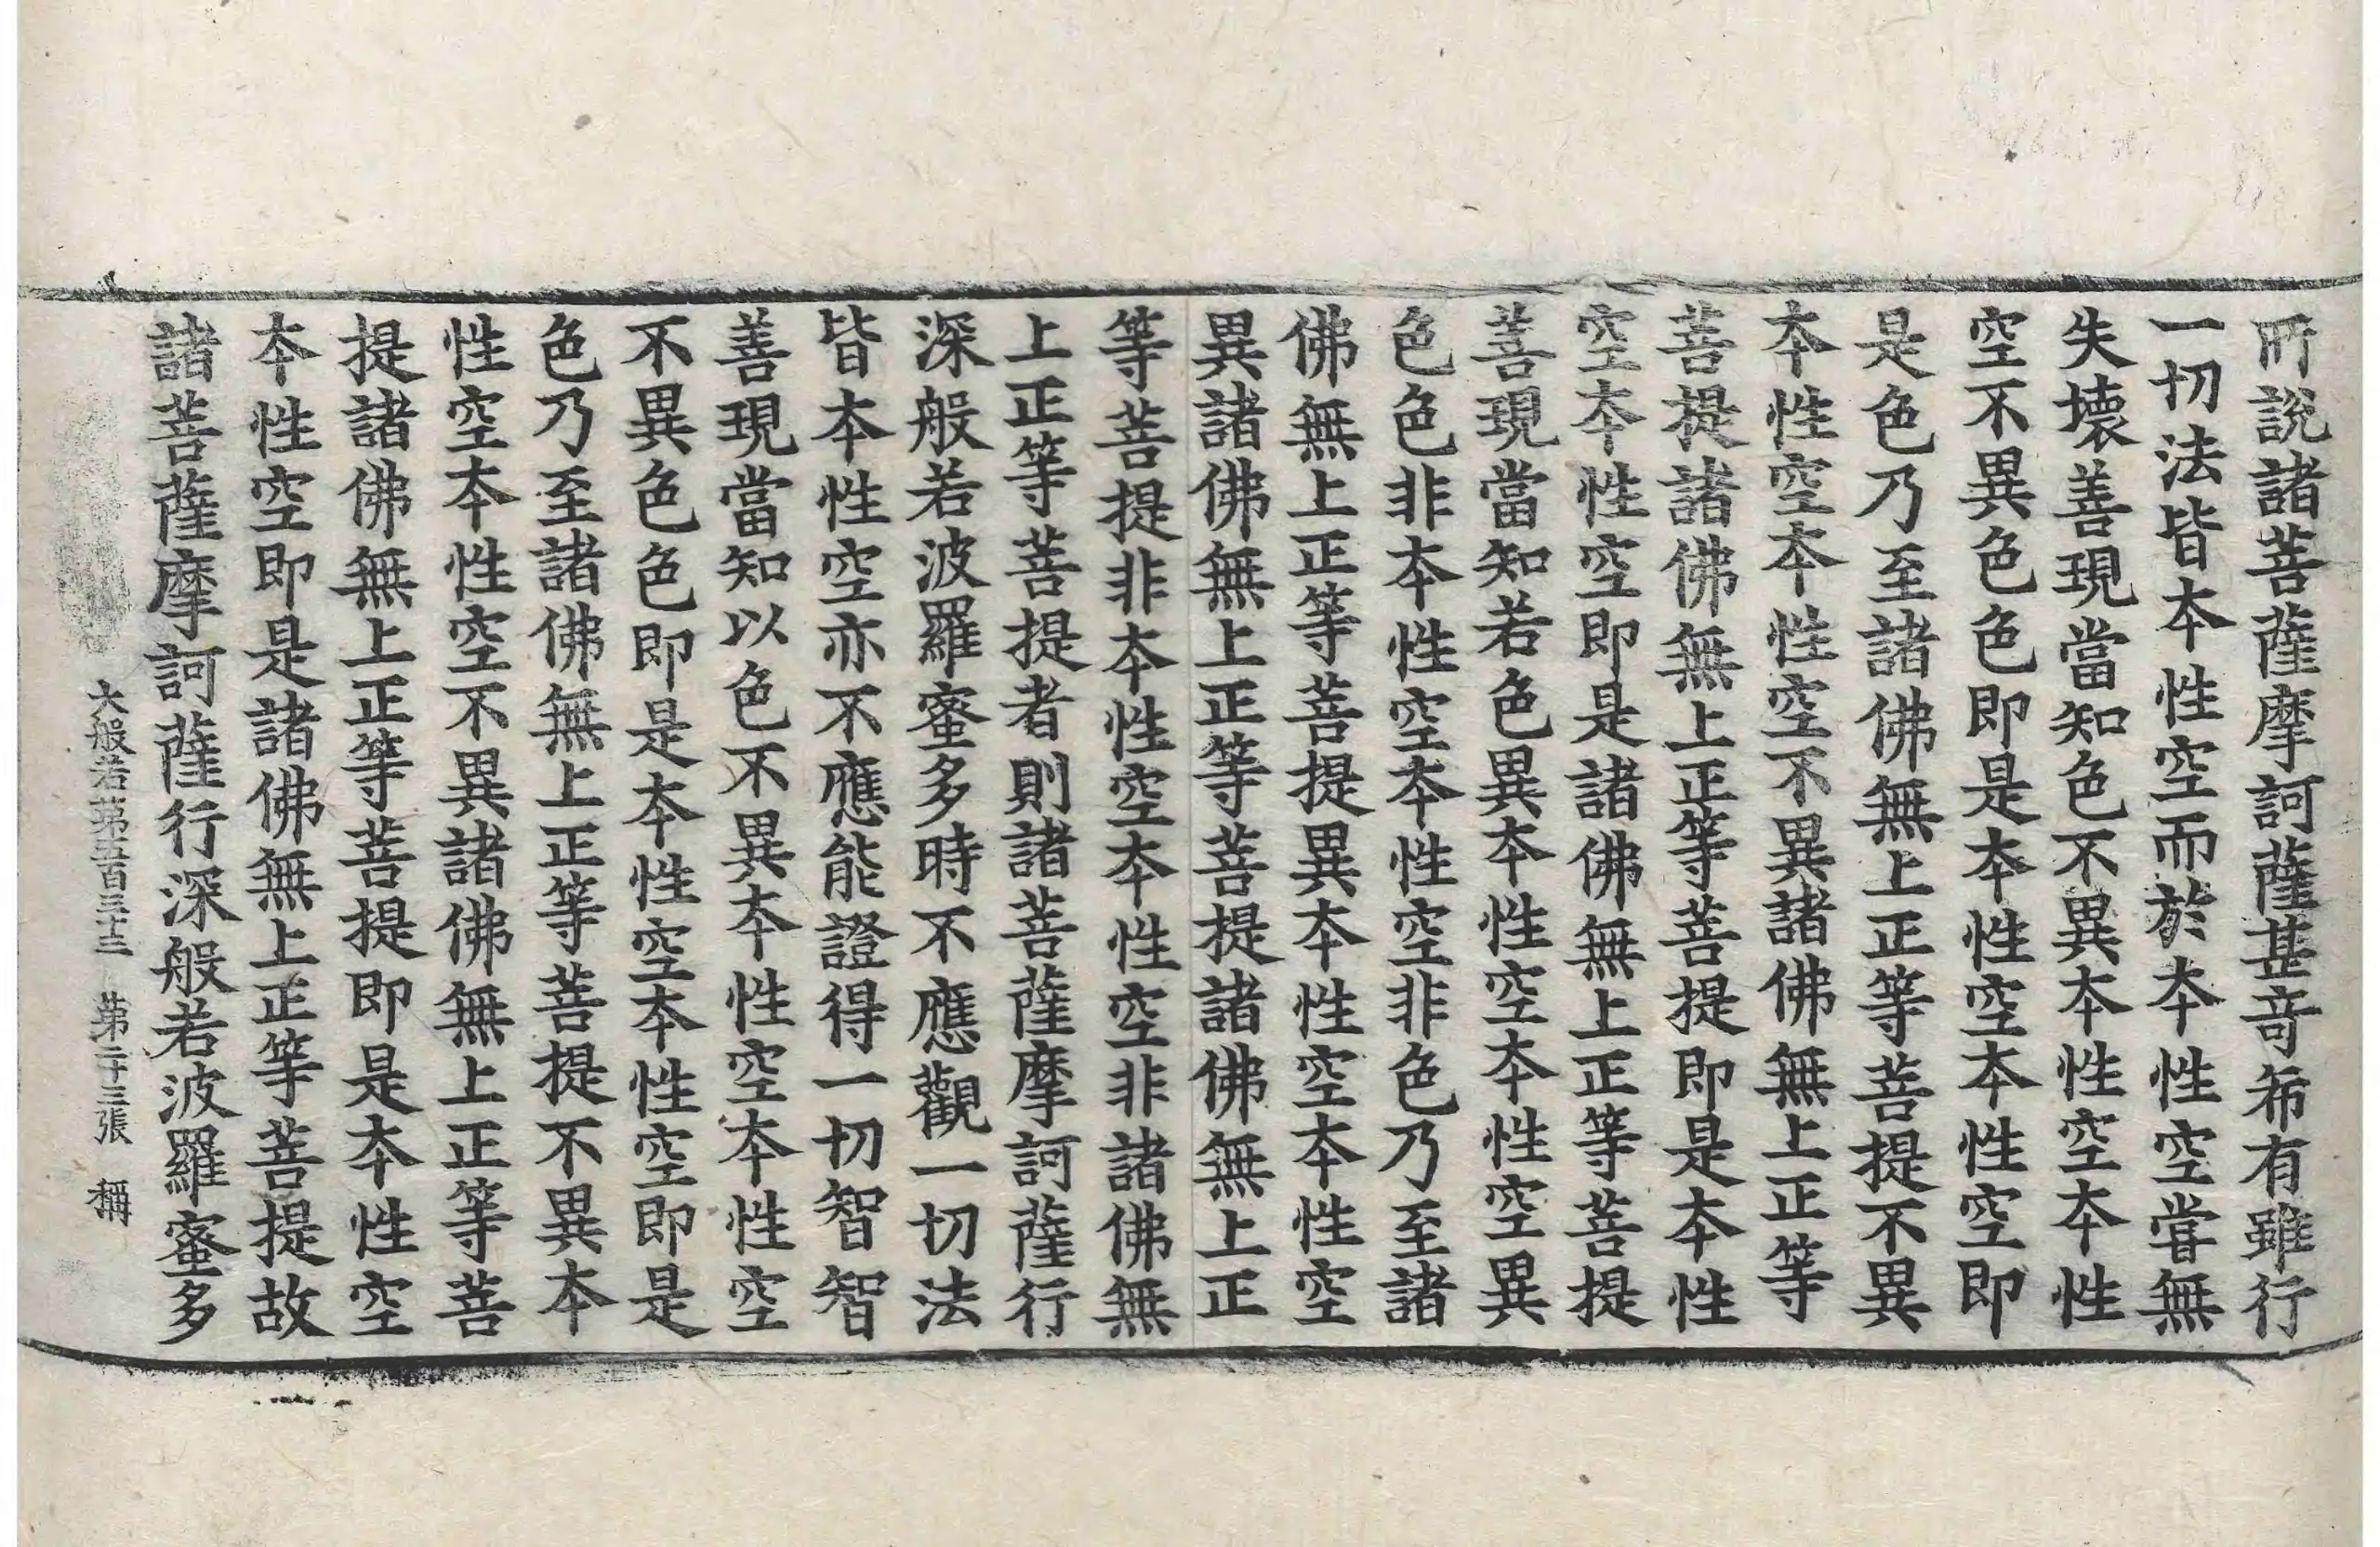 所說諸菩薩摩訶薩甚奇希有雖行
一切法皆本性空而於本性空嘗無
失壞善現當知色不異本性空本性
空不異色色即是本性空本性空即
是色乃至諸佛無上正等菩提不異
本性空本性空不異諸佛無上正等
菩提諸佛無上正等菩提即是本性
空本性空即是諸佛無上正等菩提
善現當知若色異本性空本性空異
色色非本性空本性空非色乃至諸
佛無上正等菩提異本性空本性空
異諸佛無上正等菩提諸佛無上正
等菩提非本性空本性空非諸佛無
上正等菩提者則諸菩薩摩訶薩行
深般若波羅蜜多時不應觀一切法
皆本性空亦不應能證得一切智智
善現當知以色不異本性空本性空
不異色色即是本性空本性空即是
色乃至諸佛無上正等菩提不異本
性空本性空不異諸佛無上正等菩
提諸佛無上正等菩提即是本性空
本性空即是諸佛無上正等菩提故
諸菩薩摩訶薩行深般若波羅蜜多
大般若第五百三十三 第二十三張 稱